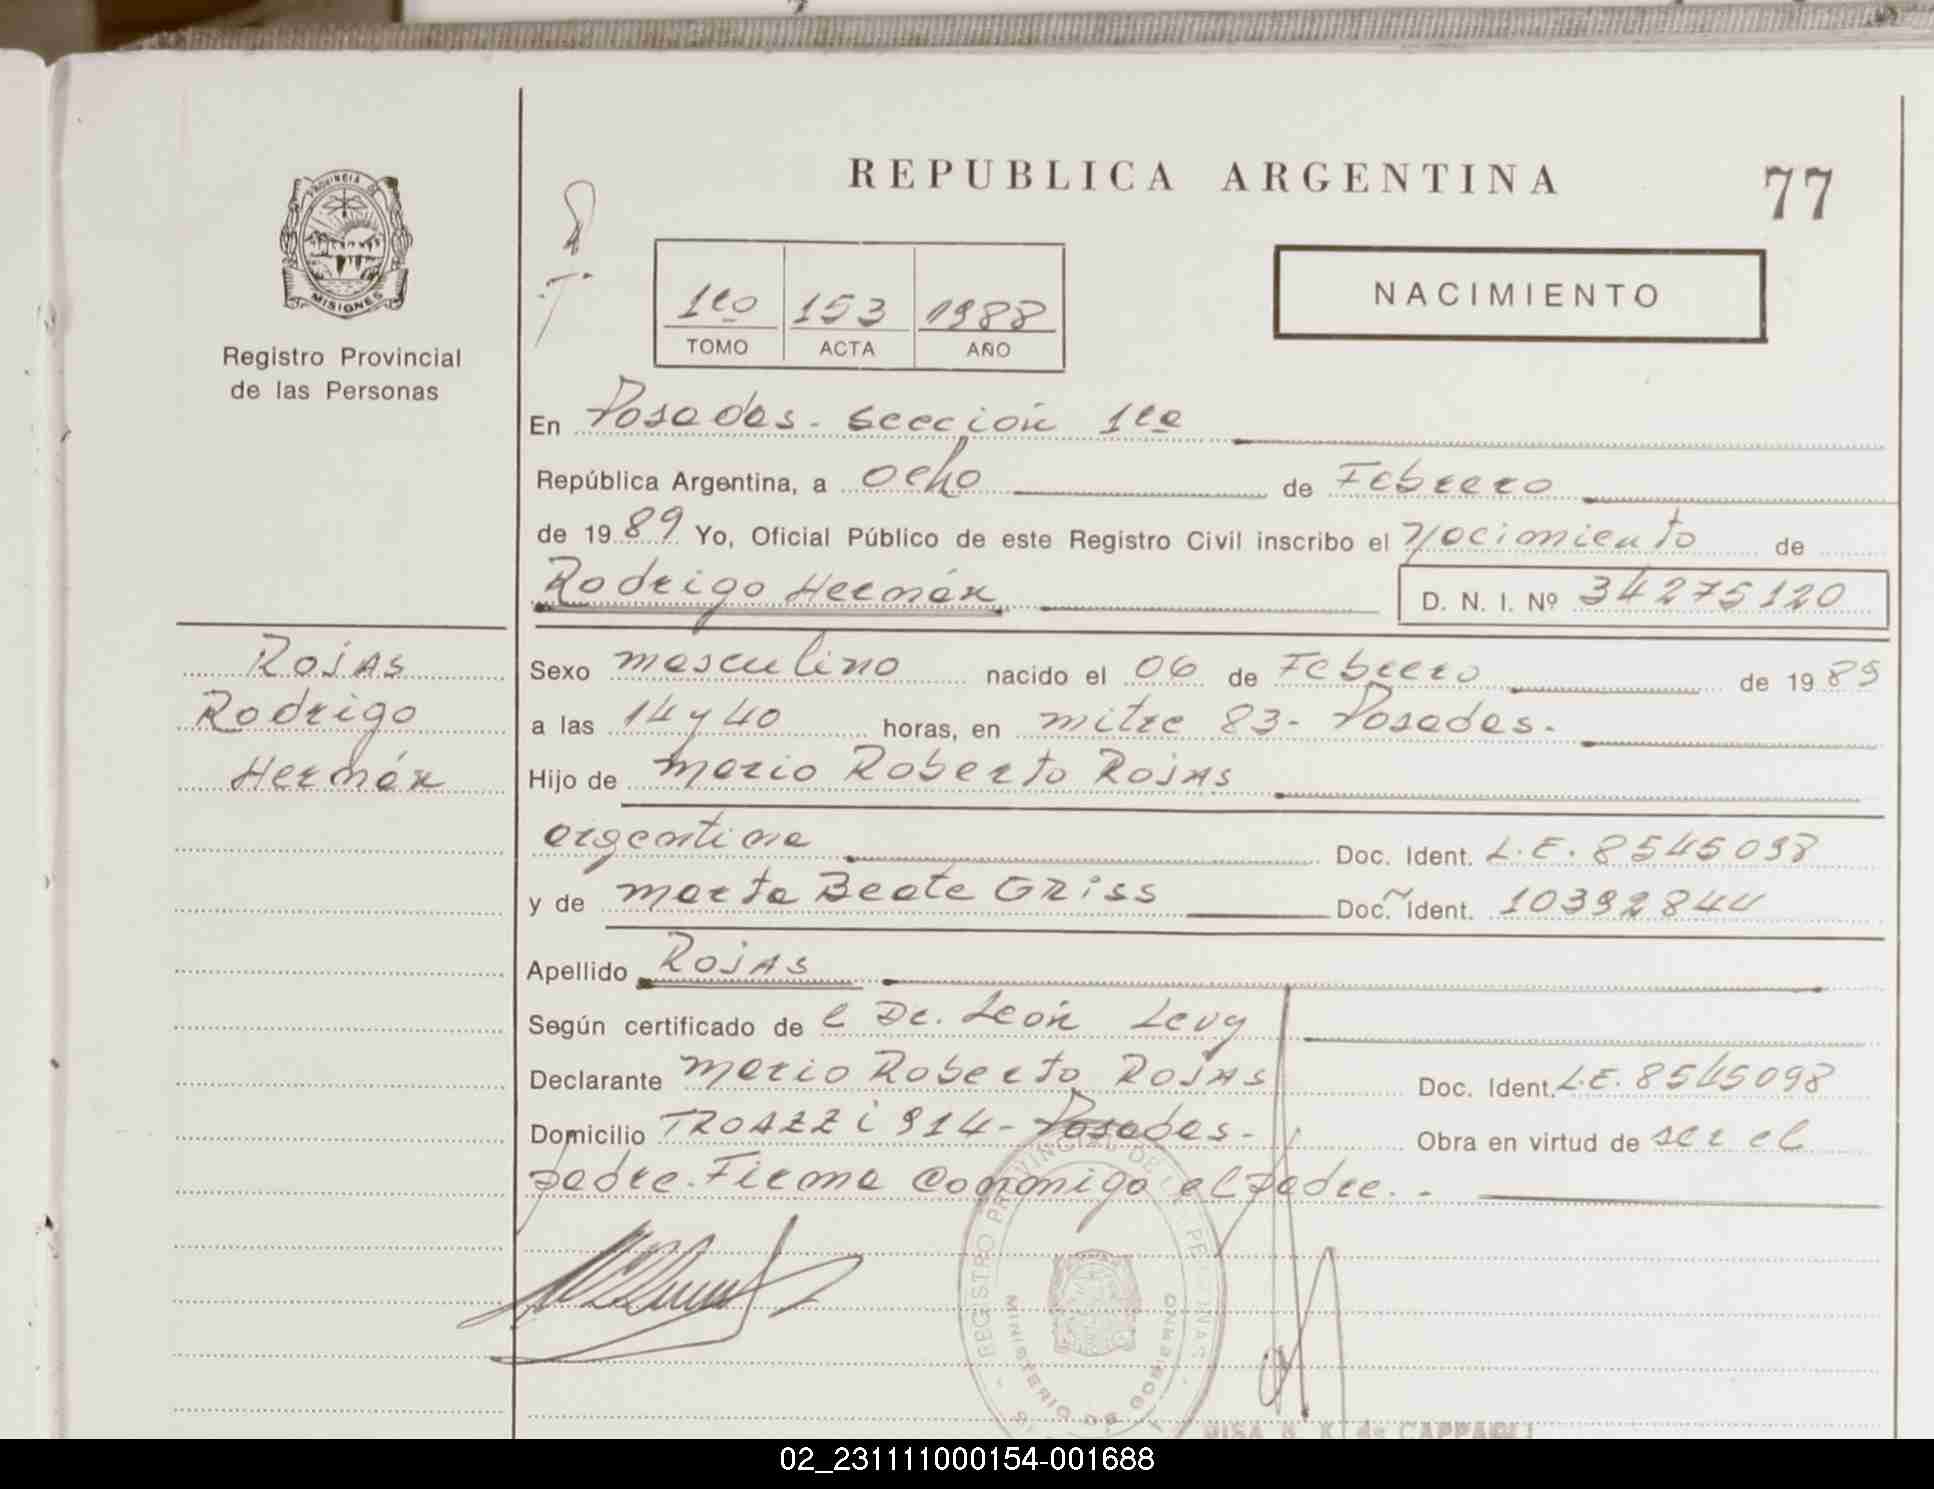 REPUBLICA ARGENTINA
77
PROVINCIA DE
MISIONES
Registro Provincial
de las Personas
1ro 153 1988
TOMO ACTA AÑO
NACIMIENTO
En Posadas - sección 1ra
República Argentina, a ocho de Febrero
de 1989 Yo, Oficial Público de este Registro Civil inscribo el nacimiento de
Rodrigo Hernán D. N. I. Nº 34275120
Rojas
Rodrigo
Hernán
Sexo masculino nacido el 06 de Febrero de 1989
a las 14 y 40 horas, en mitre 83 - Posadas.
Hijo de Mario Roberto Rojas
argentina Doc. Ident. L.E. 8545098
y de Marta Beate Griss Doc. Ident. 10392844
Apellido Rojas
Según certificado de el Dr. León Levy
Declarante Mario Roberto Rojas Doc. Ident. L.E. 8545098
Domicilio 914 - Posadas - Obra en virtud de ser el
padre. Firma conmigo el padre. -
REGISTRO PROVINCIAL DE PERSONAS
MINISTERIO DE GOBIERNO
de CAPPAGLI
02_231111000154-001688